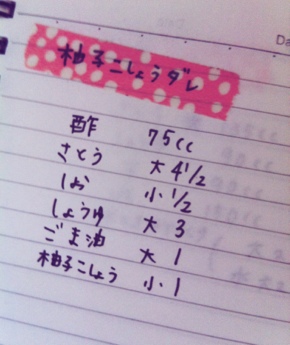 柚子こしょうダレ
酢 75cc
さとう 大4 1/2
しお 小1/2
しょうゆ 大3
ごま油 大1
柚子こしょう 小1